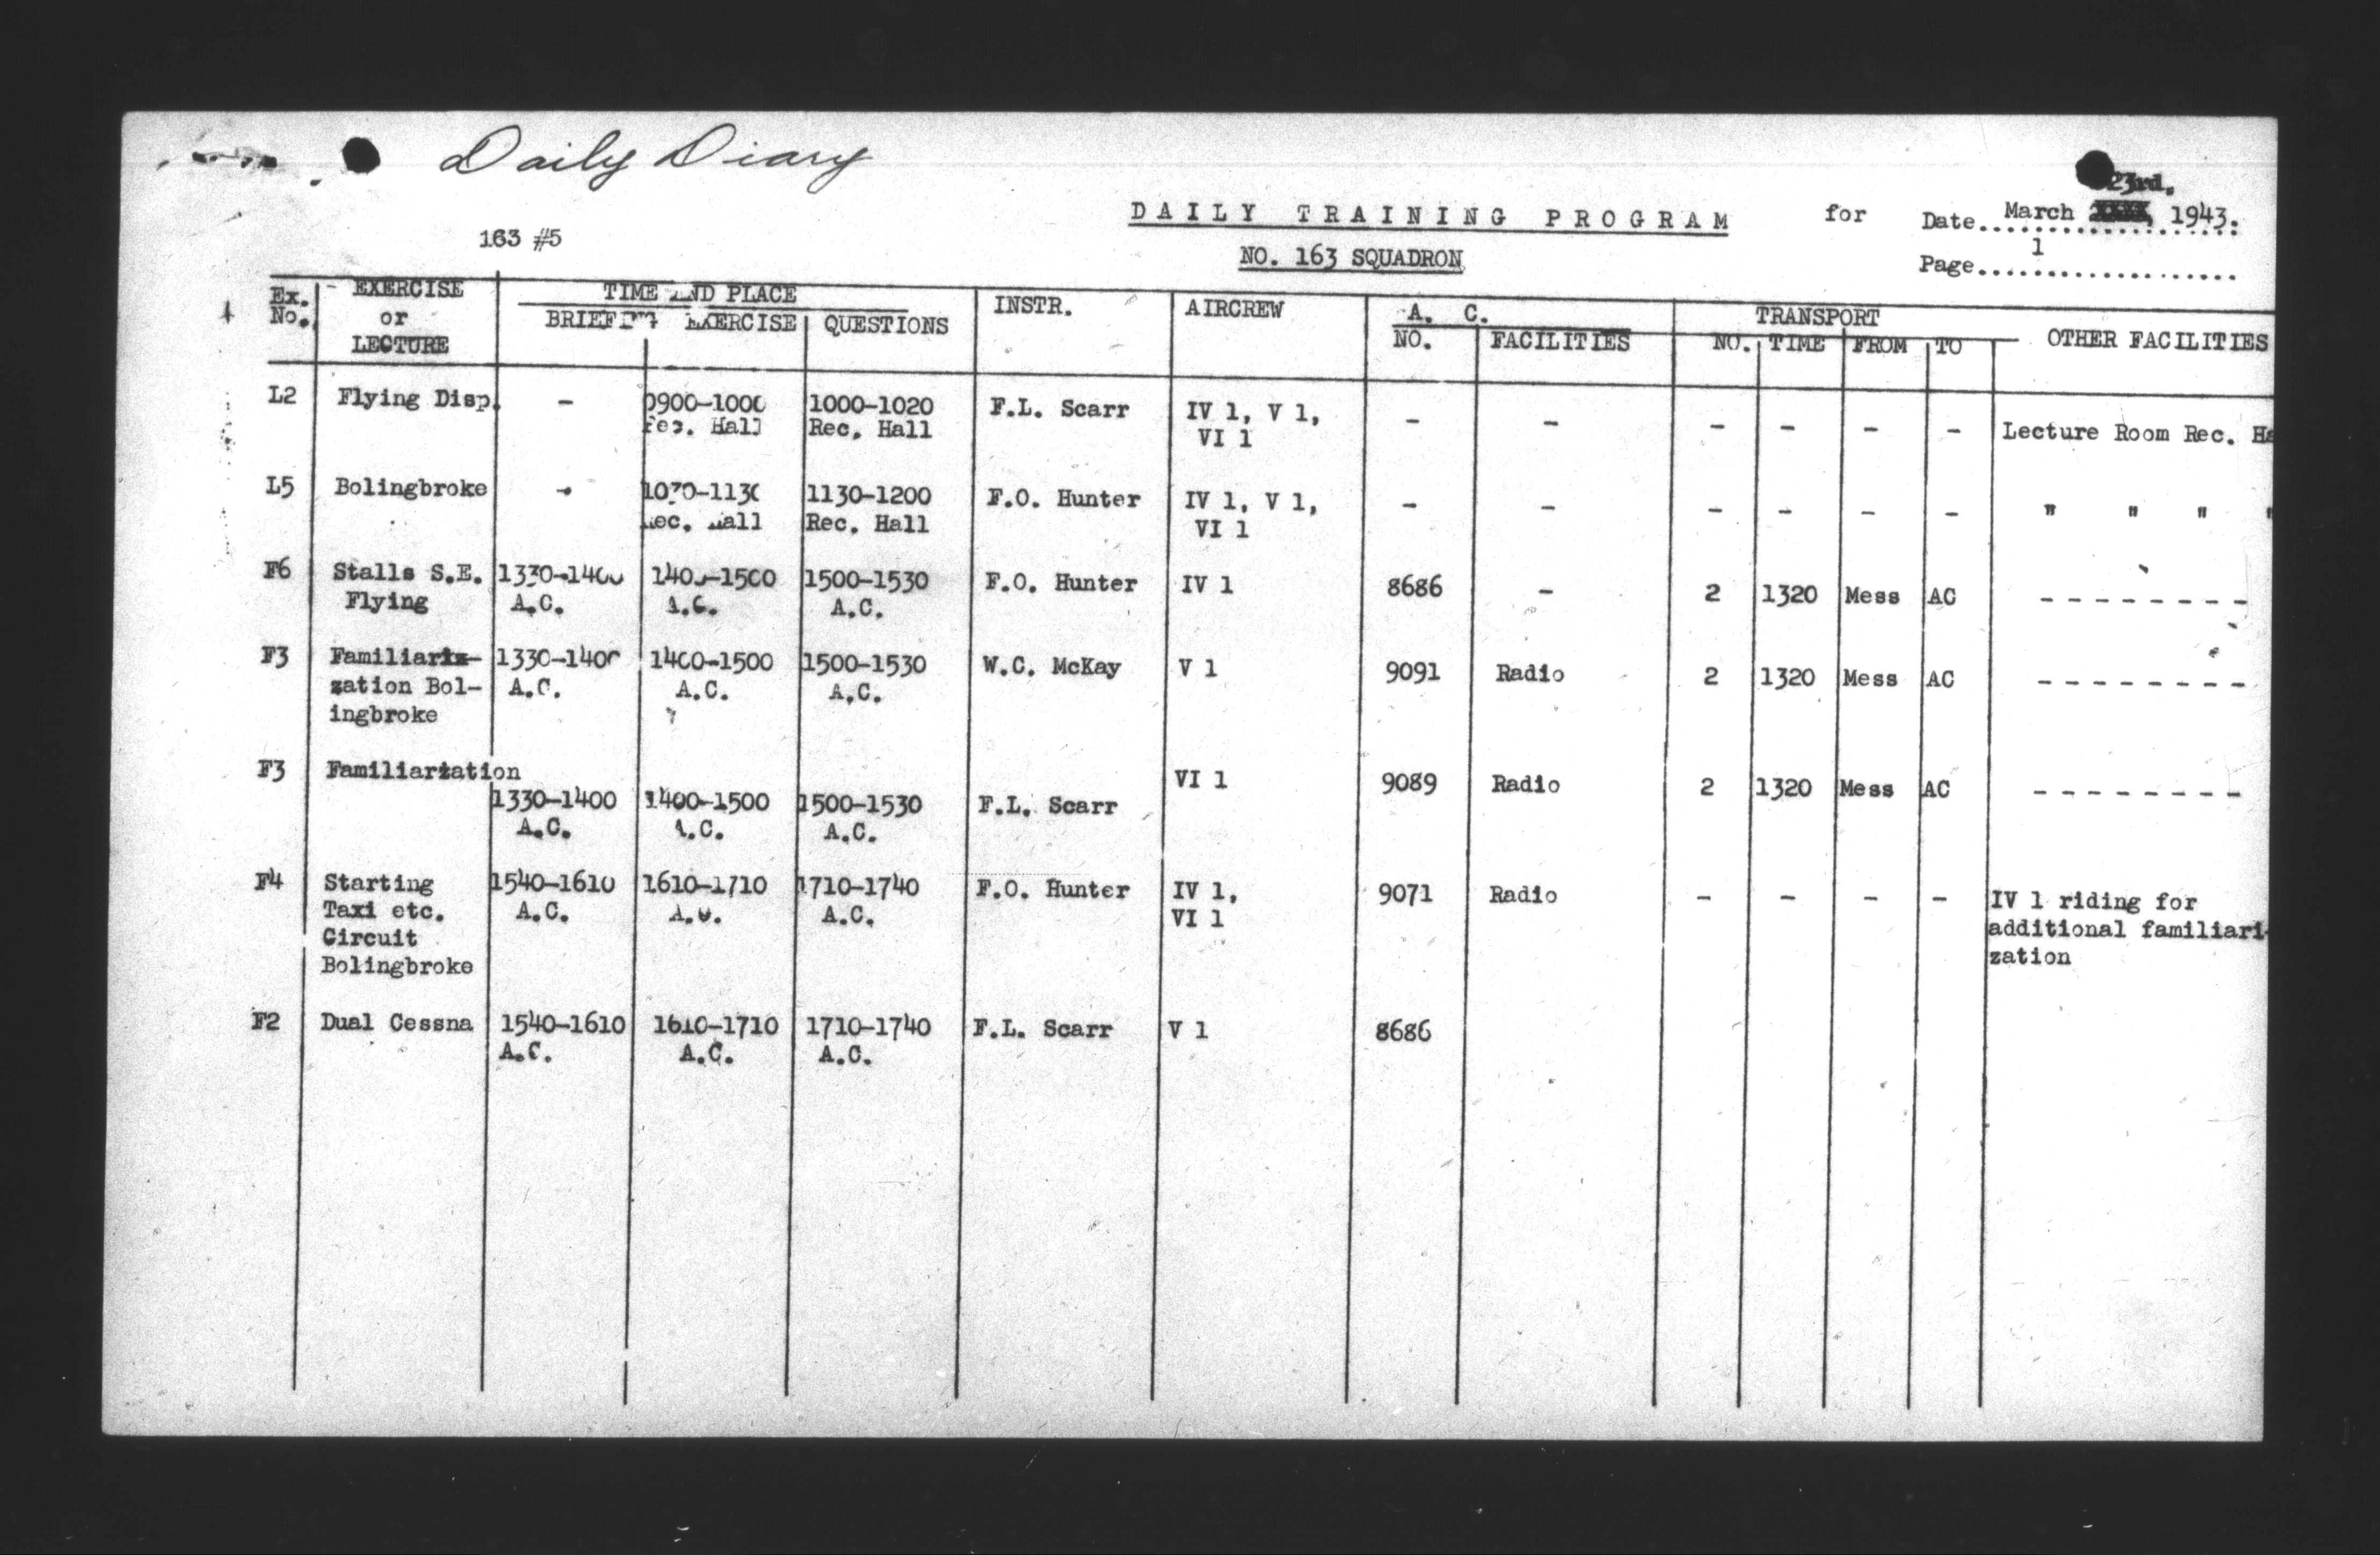 Daily Diary
23rd.
DAILY TRAINING PROGRAM for Date March 1943.
163 #5
NO. 163 SQUADRON Page 1
Ex. No. EXERCISE or LECTURE TIME AND PLACE INSTR. AIRCREW A. C. TRANSPORT OTHER FACILITIES
BRIEFING EXERCISE QUESTIONS NO. FACILITIES NO. TIME FROM TO
L2 Flying Disp. - 0900-1000 1000-1020 F.L. Scarr IV 1, V 1, - - - - - - Lecture Room Rec.
Rec. Hall Rec. Hall VI 1
L5 Bolingbroke - 1030-1130 1130-1200 F.O. Hunter IV 1, V 1, - - - - - - " " " "
Rec. Hall Rec. Hall VI 1
F6 Stalls S.E. 1330-1400 1400-1500 1500-1530 F.O. Hunter IV 1 8686 - 2 1320 Mess AC - - - - - - - -
Flying A.C. A.C. A.C.
F3 Familiariz- 1330-1400 1400-1500 1500-1530 W.C. McKay V 1 9091 Radio 2 1320 Mess AC - - - - - - - -
zation Bol- A.C. A.C. A.C.
ingbroke
F3 Familiarzation VI 1 9089 Radio 2 1320 Mess AC - - - - - - - -
1330-1400 1400-1500 1500-1530 F.L. Scarr
A.C. A.C. A.C.
F4 Starting 1540-1610 1610-1710 1710-1740 F.O. Hunter IV 1, 9071 Radio - - - - IV 1 riding for
Taxi etc. A.C. A.C. A.C. VI 1 additional familiari-
Circuit zation
Bolingbroke
F2 Dual Cessna 1540-1610 1610-1710 1710-1740 F.L. Scarr V 1 8686
A.C. A.C. A.C.